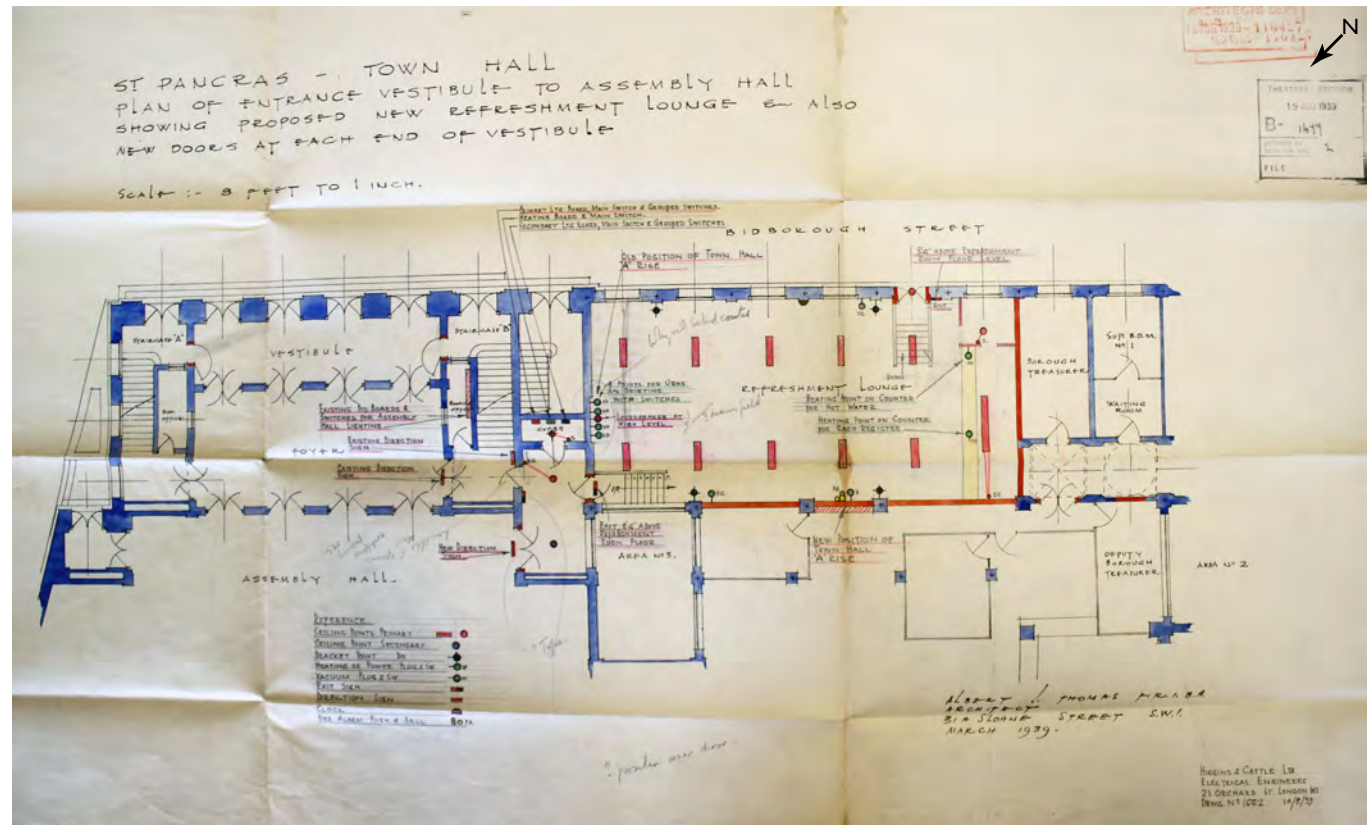 ST PANCRAS - TOWN HALL
PLAN OF ENTRANCE VESTIBULE TO ASSEMBLY HALL
SHOWING PROPOSED NEW REFRESHMENT LOUNGE & ALSO
NEW DOORS AT EACH END OF VESTIBULE
SCALE :- 8 FEET TO 1 INCH.
ARCHITECTS DEPT
N
THEATRES SECTION
1939
B-
FILE
PRIMARY LTG BOARD, MAIN SWITCH & GROUPED SWITCHES.
HEATING BOARD & MAIN SWITCH.
SECONDARY LTG BOARD, MAIN SWITCH & GROUPED SWITCHES
BIDBOROUGH STREET
OLD POSITION OF TOWN HALL
"A" RISE
6'6" ABOVE REFRESHMENT
ROOM FLOOR LEVEL
STAIRCASE "A"
VESTIBULE
STAIRCASE "B"
EXIT
DOWN
BOX
OFFICE
BOX
OFFICE
EXISTING DIS BOARDS &
SWITCHES FOR ASSEMBLY
HALL LIGHTING
POINTS FOR URNS
ON SKIRTING
WITH SWITCHES
LOUDSPEAKER AT
HIGH LEVEL
REFRESHMENT LOUNGE
HEATING POINT ON COUNTER
FOR HOT WATER
HEATING POINT ON COUNTER
FOR CASH REGISTER
BOROUGH
TREASURER
SUPT B.D.M.
Nº 1
WAITING
ROOM
FOYER
EXISTING DIRECTION
SIGN
EXISTING DIRECTION
SIGN
NEW DIRECTION
SIGN
UP
EXIT 6'6" ABOVE
REFRESHMENT
ROOM FLOOR
AREA Nº 3.
NEW POSITION OF
TOWN HALL
"A" RISE
DEPUTY
BOROUGH
TREASURER
AREA Nº 2
ASSEMBLY HALL
REFERENCE
CEILING POINTS PRIMARY
CEILING POINT SECONDARY
BRACKET POINT DO
HEATING OR POWER PLUG & SW
VACUUM PLUG & SW
EXIT SIGN
DIRECTION SIGN
CLOCK
FIRE ALARM PUSH & BELL
FA
ALBERT J. THOMAS F.R.I.B.A
ARCHITECT
31A SLOANE STREET S.W.1.
MARCH 1939.
HIGGINS & CATTLE LTD
ELECTRICAL ENGINEERS
21 ORCHARD ST. LONDON W1
DRWG. Nº 1602 14/8/39